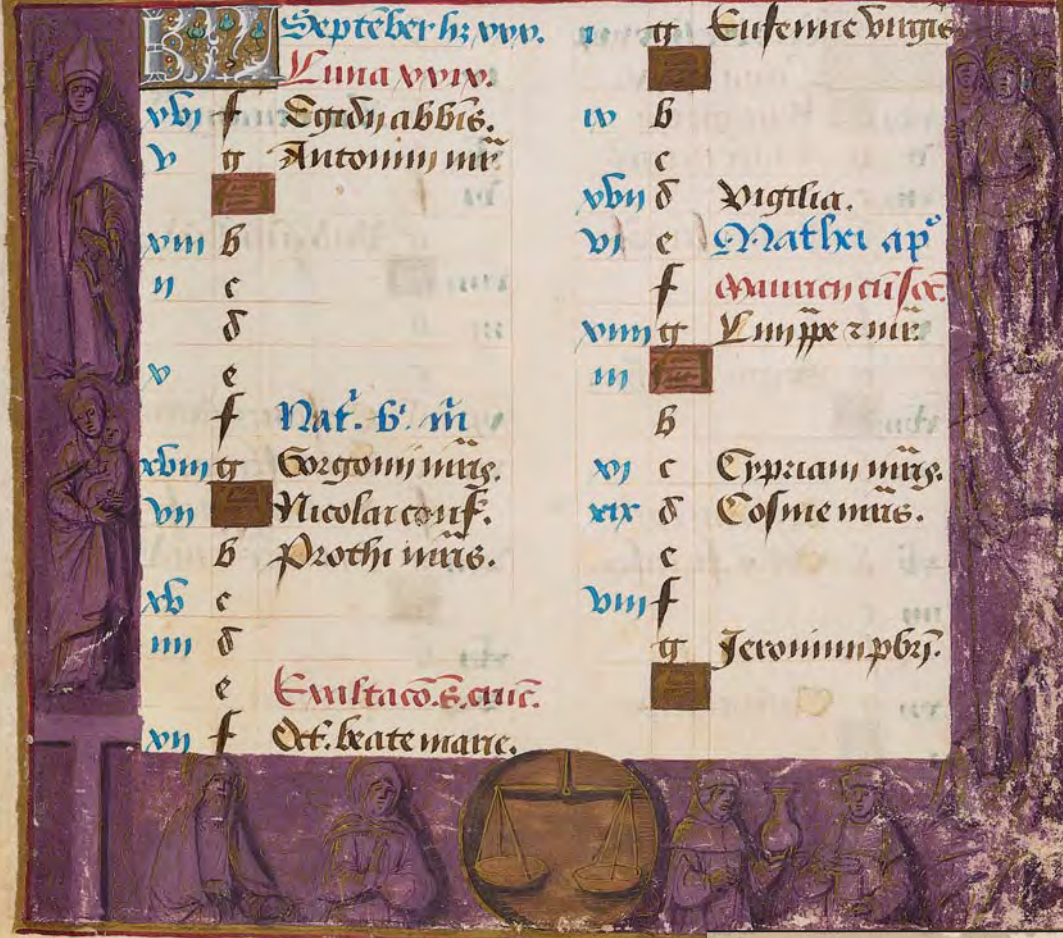 KL Septēber hꝫ xxx.
Luna xxix.
xvi f Egidij abbis.
v g Antonini mr̄
A
xiii b
ii c
d
x e
f Nat. b. m̄
xviii g Gorgonij mr̄is.
vii A Nicolai conf.
b Prothi mr̄is.
xv c
iiii d
e Exaltacō. s. cruc̄.
xii f Oct. beate marie.
i g Eufemie virgīs
A
ix b
c
xvii d Vigilia.
vi e Mathei ap̄
f Mauricij cū soc̄.
xiiii g Lini pp̄e ⁊ mr̄.
iii A
b
xi c Cypriani mr̄is.
xix d Cosme mr̄is.
e
viii f
g Jeronimi pbrī.
A